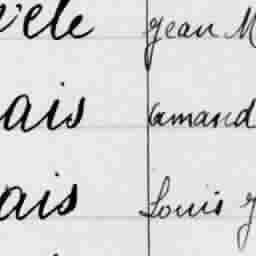 jean M
ais amand
ais Louis J